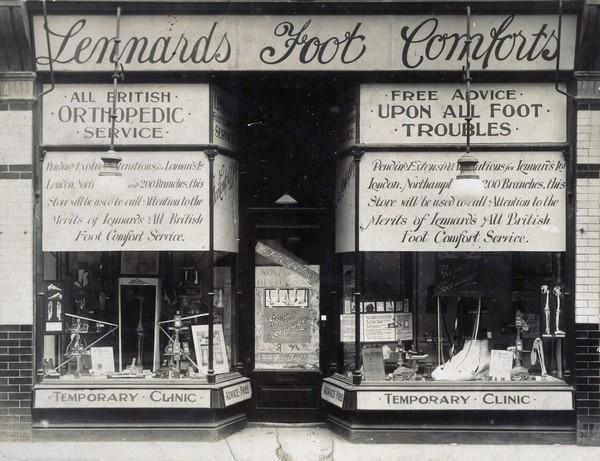 Lennards Foot Comforts
ALL BRITISH
ORTHOPEDIC
SERVICE
FREE ADVICE
UPON ALL FOOT
TROUBLES
Pending Extensive for Lennards Ltd
London, and 200 Branches, this
Store will be used to call Attention to the
Merits of Lennards All British
Foot Comfort Service.
Pending Extensive for Lennards Ltd
London, Northampton 200 Branches, this
Store will be used to call Attention to the
Merits of Lennards All British
Foot Comfort Service.
NOW
OPEN
TEMPORARY CLINIC
ADVICE FREE
ADVICE FREE
TEMPORARY CLINIC